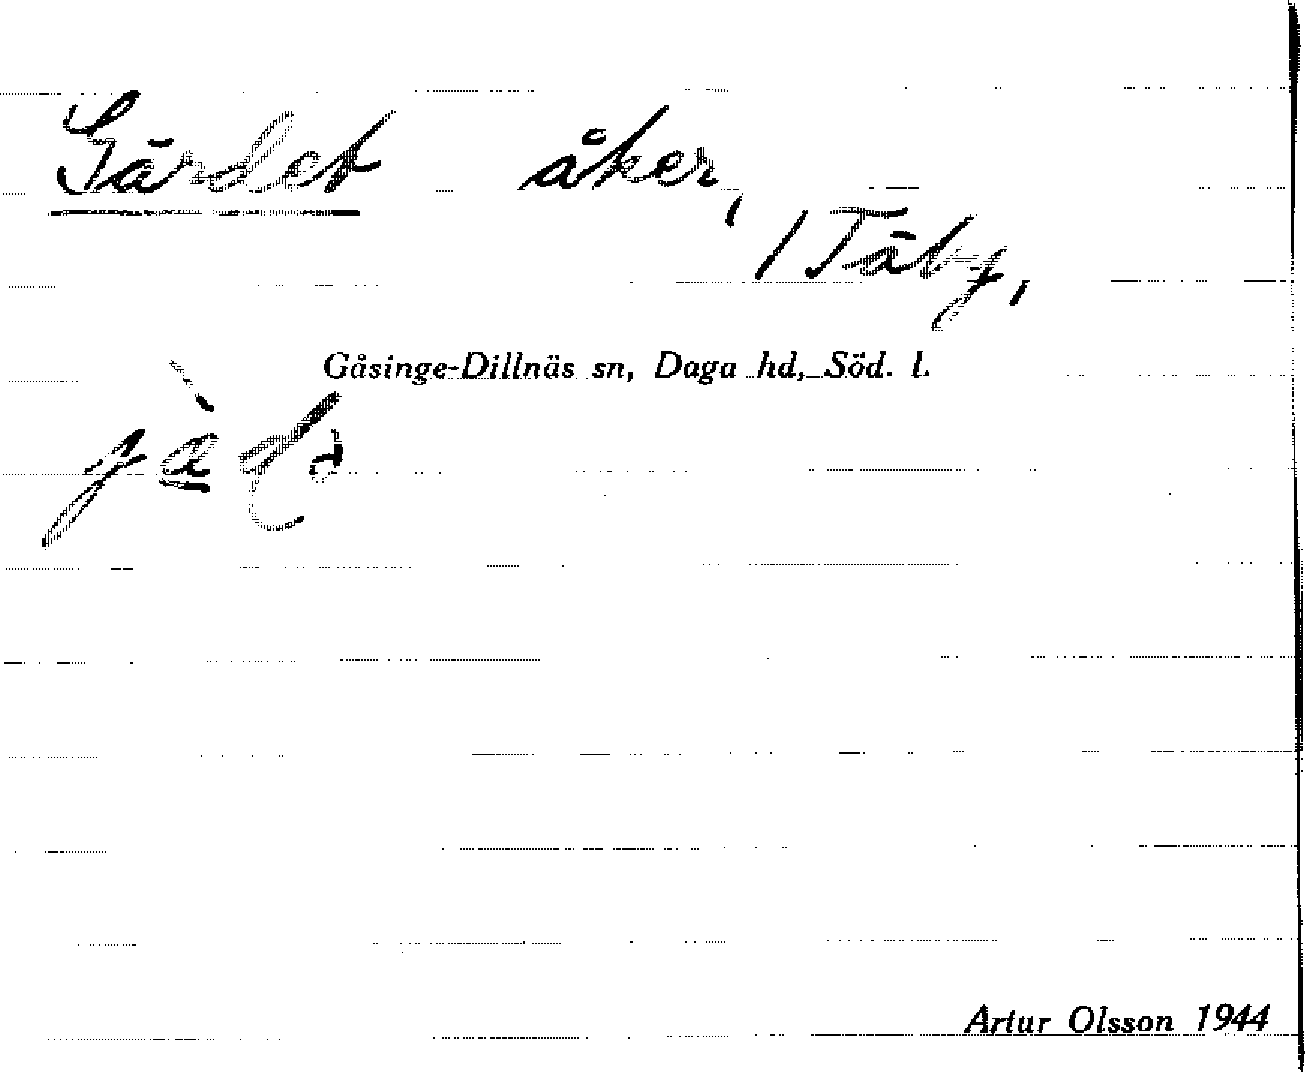 Gärdet åker,
/ Täby,
Gåsinge-Dillnäs sn, Daga hd, Söd. l.
Artur Olsson 1944